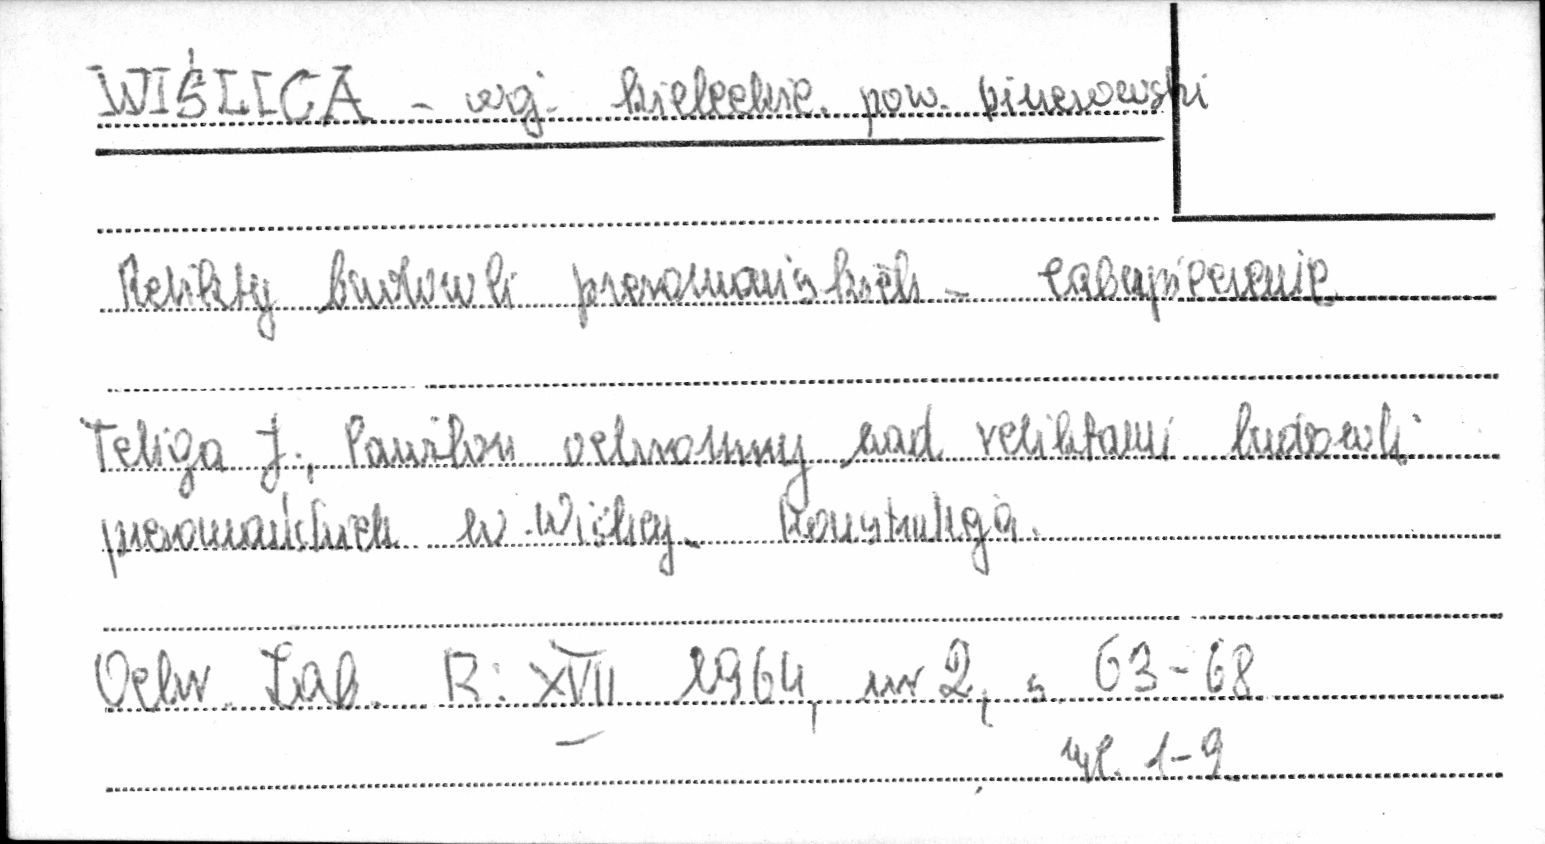 WIŚLICA - woj. kieleckie. pow. pinczowski
Relikty budowli preromańskich - zabezpieczenie
Teliga J., Pawilon ochronny nad reliktami budowli
preromańskich w Wiślicy. Konstrukcja.
Ochr. Zab. R: XVII 1964, nr 2, s. 63-68
ryc. 1-9